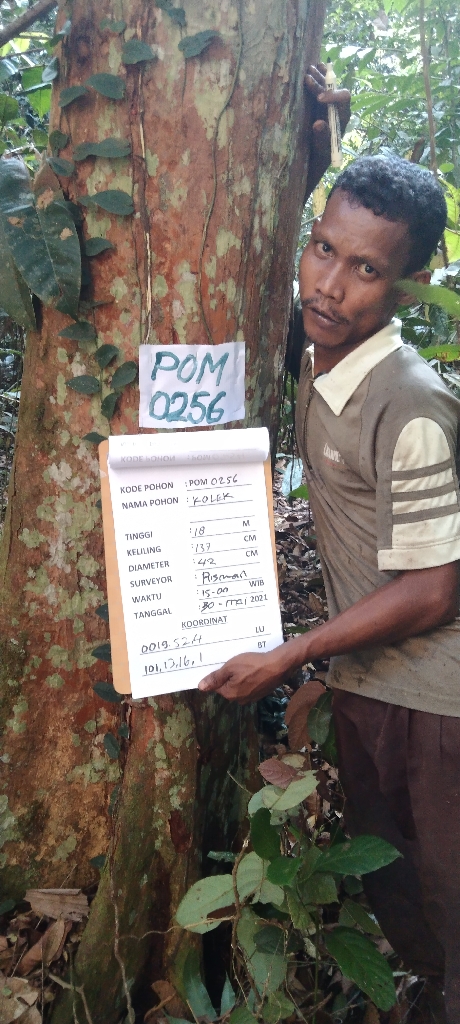 POM
0256
KODE POHON : POM 0256
NAMA POHON : KOLEK
TINGGI : 18 M
KELILING : 137 CM
DIAMETER : 42 CM
SURVEYOR : Risman
WAKTU : 15-00 WIB
TANGGAL : 30 - MEI 2021
KOORDINAT
0019.52.4 LU
101.13.16.1 BT